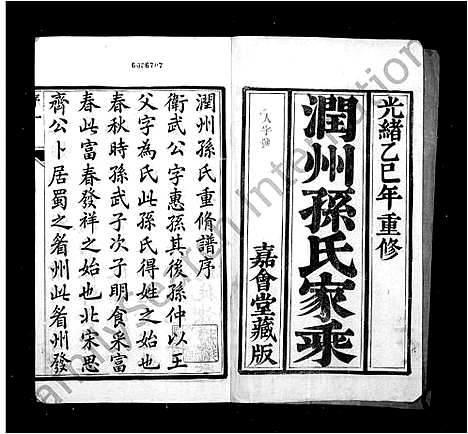 光緒乙巳年重修
潤州孫氏家乘
嘉會堂藏版
人字號
潤州孫氏重脩譜序
衛武公字惠孫其後孫仲以王
父字為氏此孫氏得姓之始也
春秋時孫武子次子明食采富
春此富春發祥之始也北宋思
齊公卜居蜀之眉州此眉州發